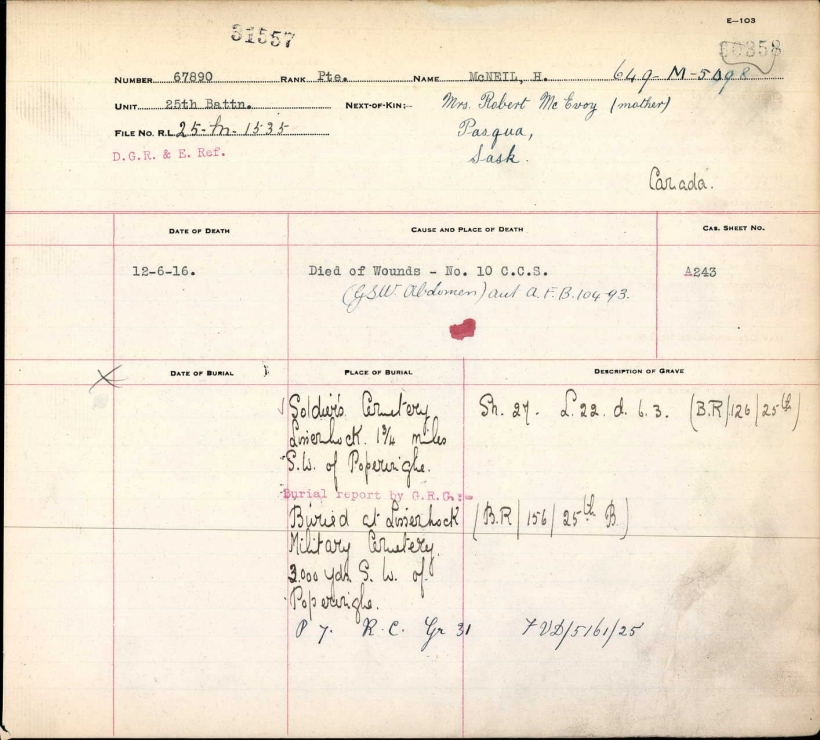 E-103
31557
50358
NUMBER 67890 RANK Pte. NAME McNEIL, H. 649-M-5098
UNIT 25th Battn. NEXT-OF-KIN:- Mrs. Robert McEvoy (mother)
FILE NO. R.L. 25-M-1535 Pasqua,
D.G.R. & E. Ref. Sask.
Canada.
DATE OF DEATH CAUSE AND PLACE OF DEATH CAS. SHEET NO.
12-6-16. Died of Wounds - No. 10 C.C.S. A243
(GSW. Abdomen) aut A.F.B. 104-93.
DATE OF BURIAL PLACE OF BURIAL DESCRIPTION OF GRAVE
Soldiers Cemetery Sh. 27. L.22. d. 6. 3. (B.R/126/25th)
Lissenhock. 1¾ miles
S.W. of Poperinghe.
Burial report by G.R.C.:-
Buried at Lissenhock (B.R/156/25th B)
Military Cemetery
3.000 yds S. W. of
Poperinghe.
P 7. R.C. Gr 31 FVD/5161/25